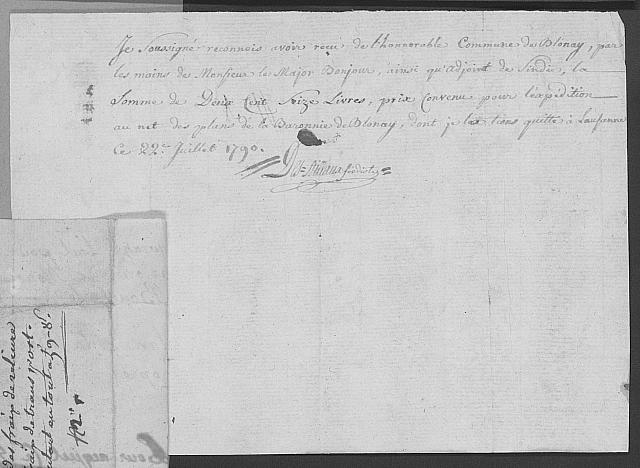 Je Soussigné reconnois avoir reçu de l'honnorable Commune de Blonay, par
les mains de Monsieur le Major Bonjour, ainsi qu'adjoint de Sindic, la
Somme de Deux Cent Seize Livres, prix Convenu pour l'expédition
au net des plans de la Baronnie de Blonay, dont je les tiens quitte à Lausanne
Ce 22e. Juillet 1790.
des fraix de reliure
de transport.